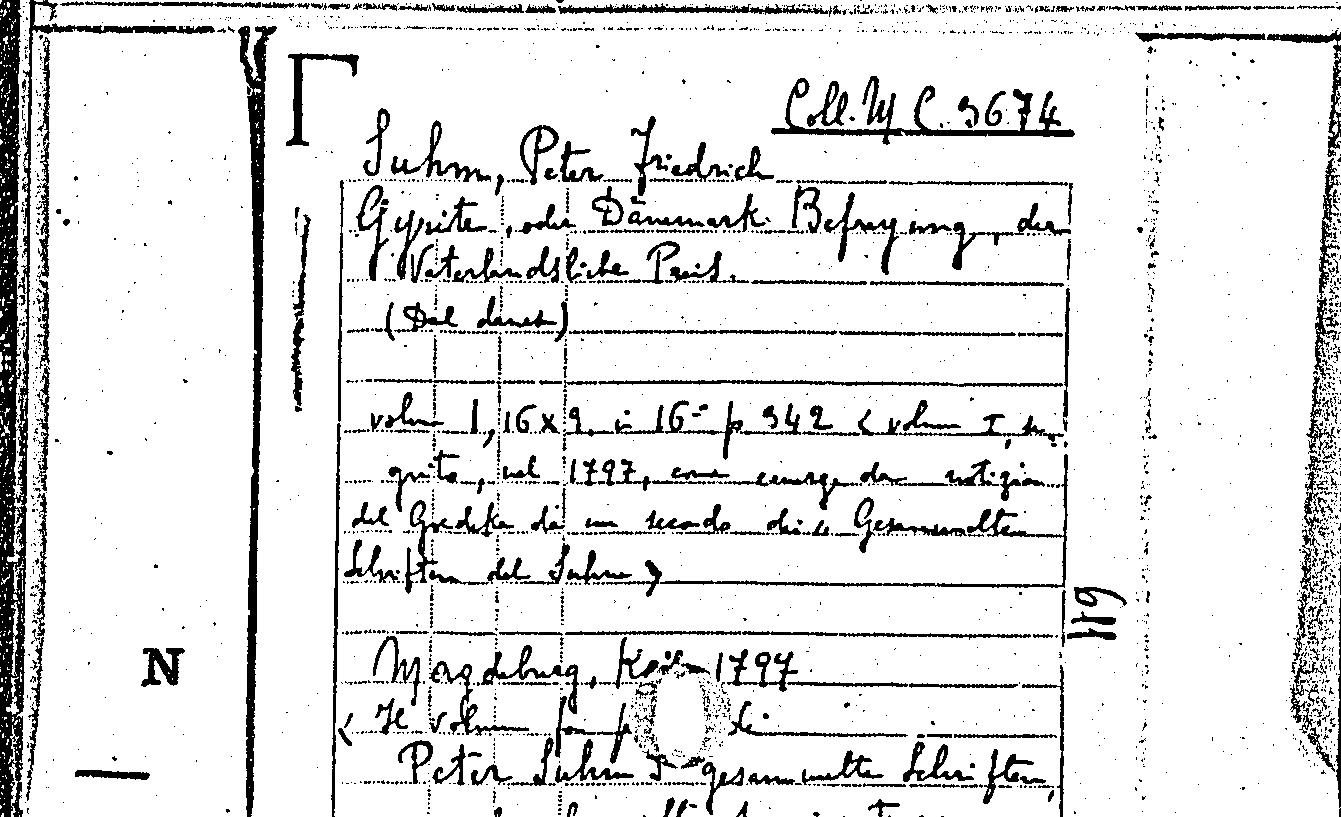 Coll. M C. 3674
Suhm, Peter Friedrich
Gyrite, oder Dänemark Befreyung, der
Vaterlandsliche Preis.
(Dal danese)
volume 1, 16 x 9. in 16° p 342 < volume I,
nel 1797, come emerge da
del Goedeke da un secondo dei Gesammelten
Schriften del Suhm >
Magdeburg, 1797
< Il volume fa
Peter Suhm gesammelte Schriften,
119
N